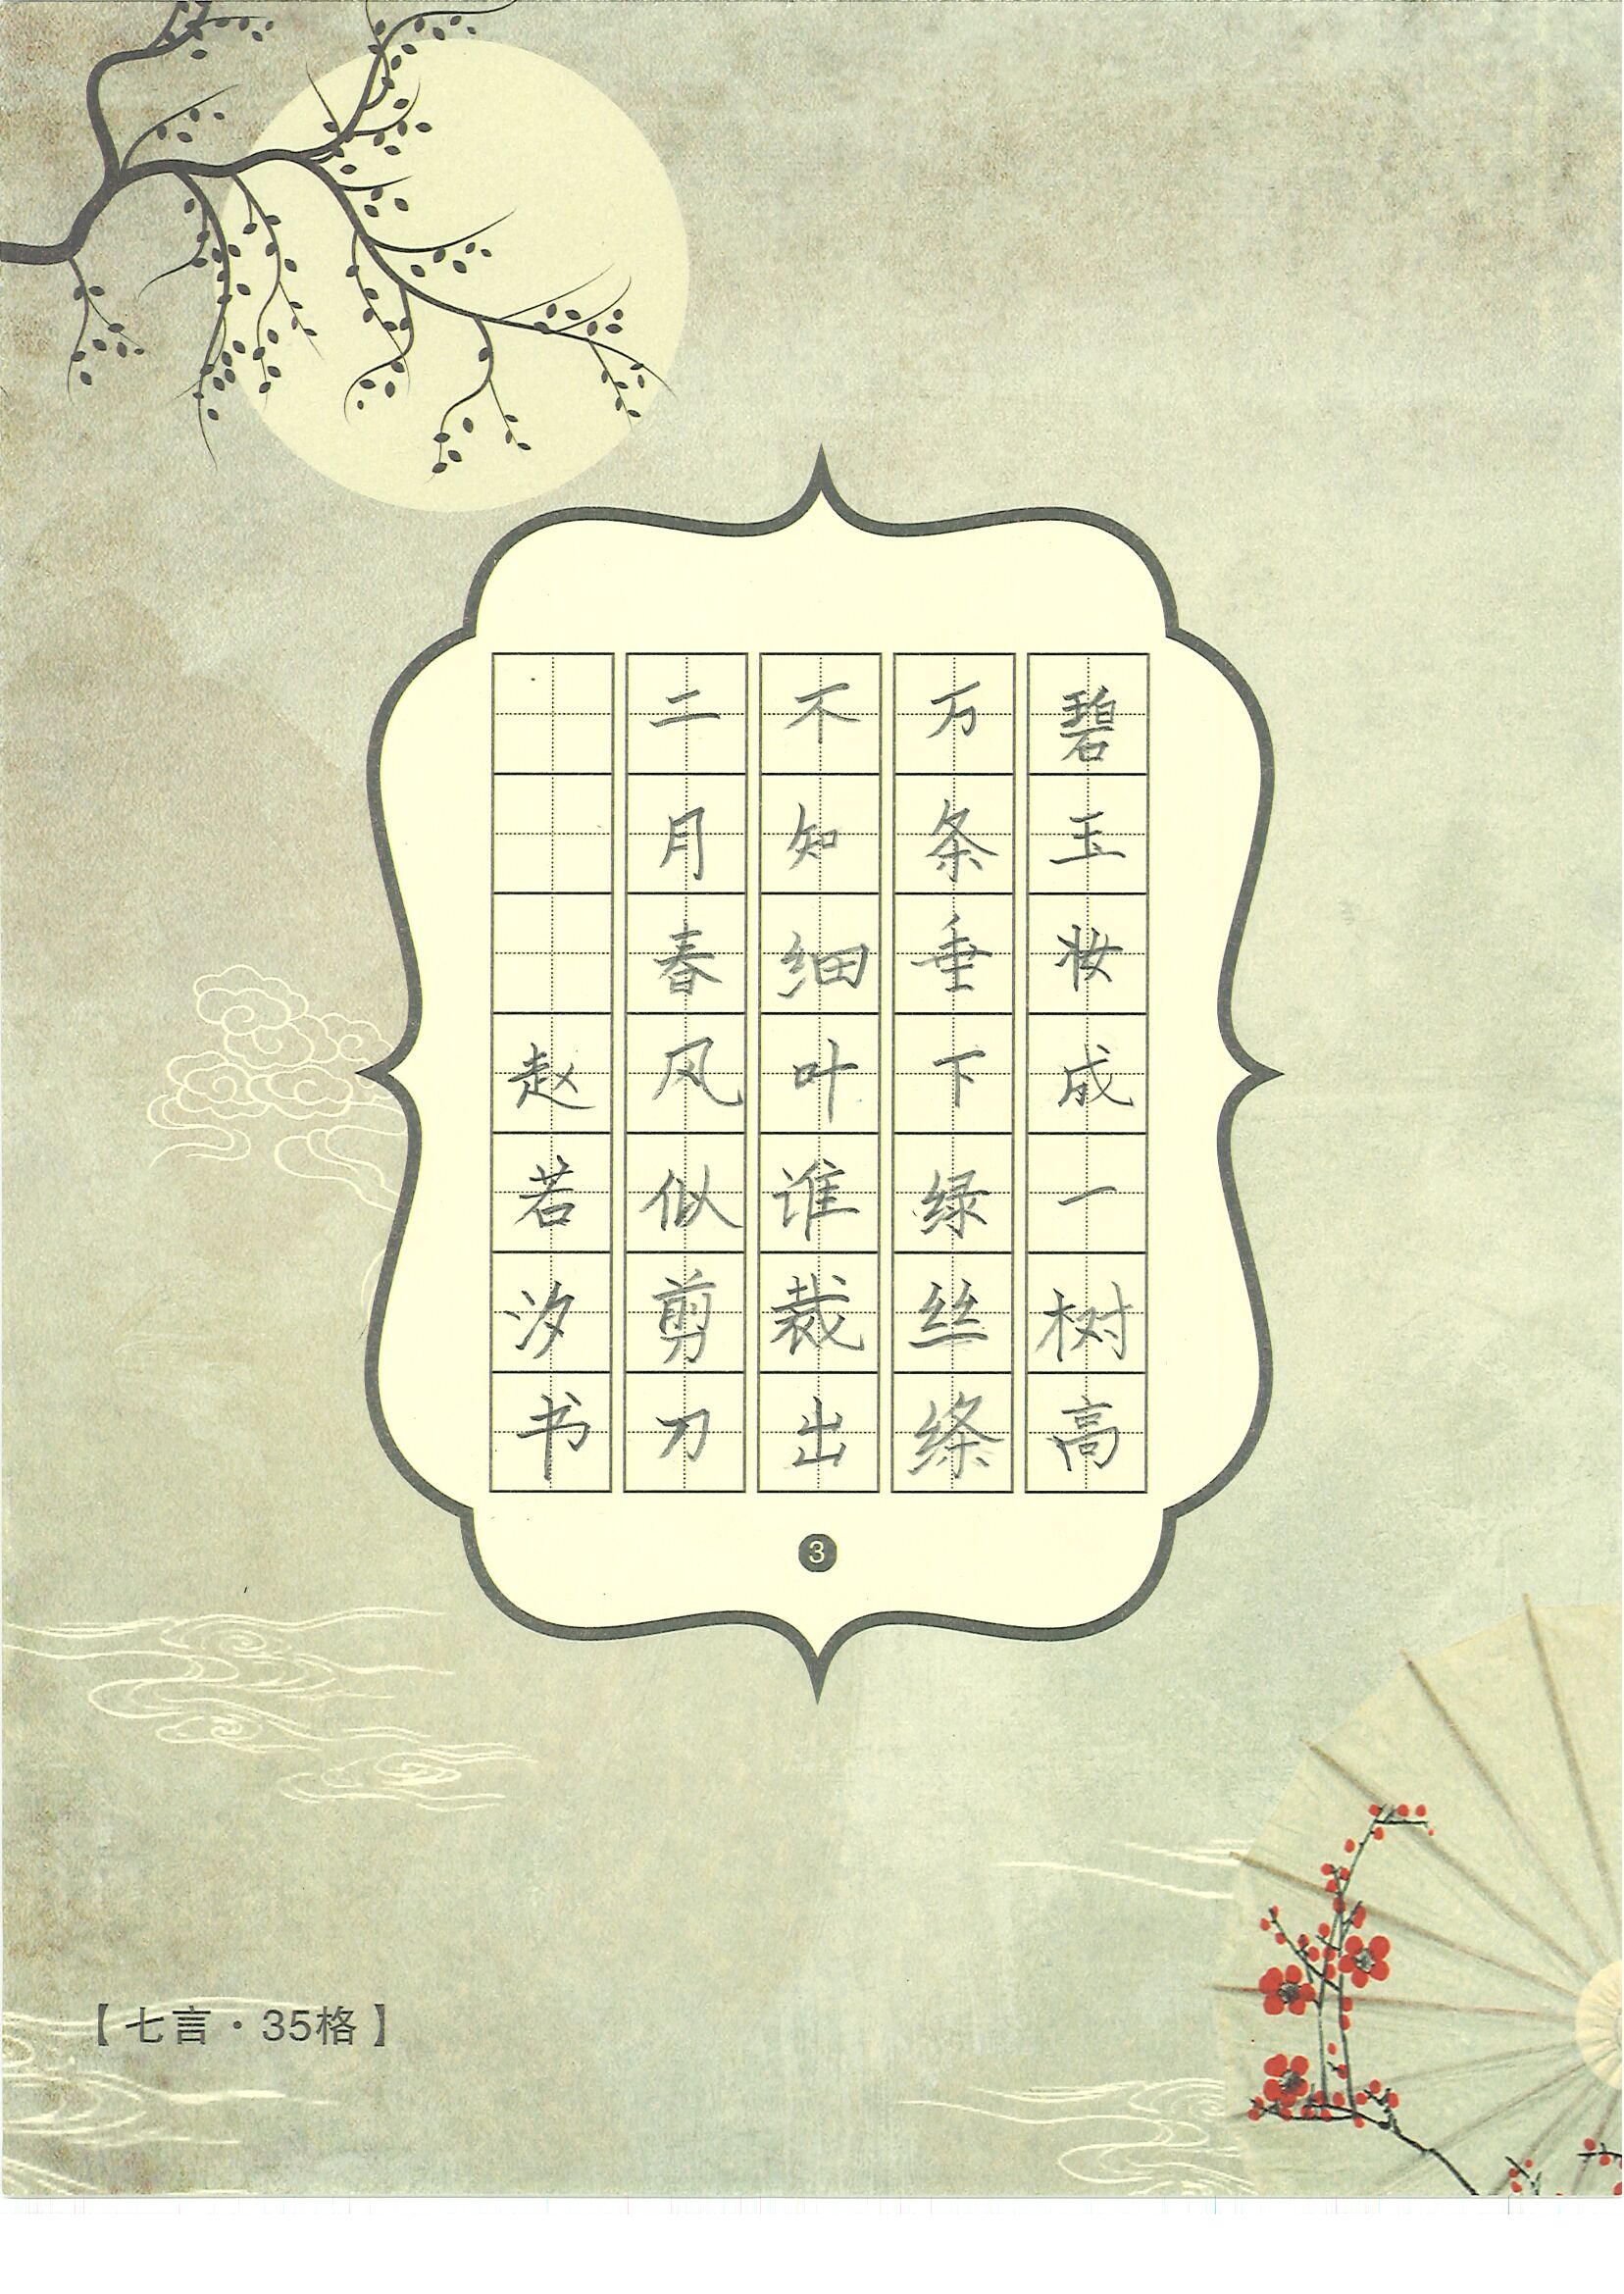 碧玉妆成一树高
万条垂下绿丝绦
不知细叶谁裁出
二月春风似剪刀
赵若汐书
3
【七言·35格】